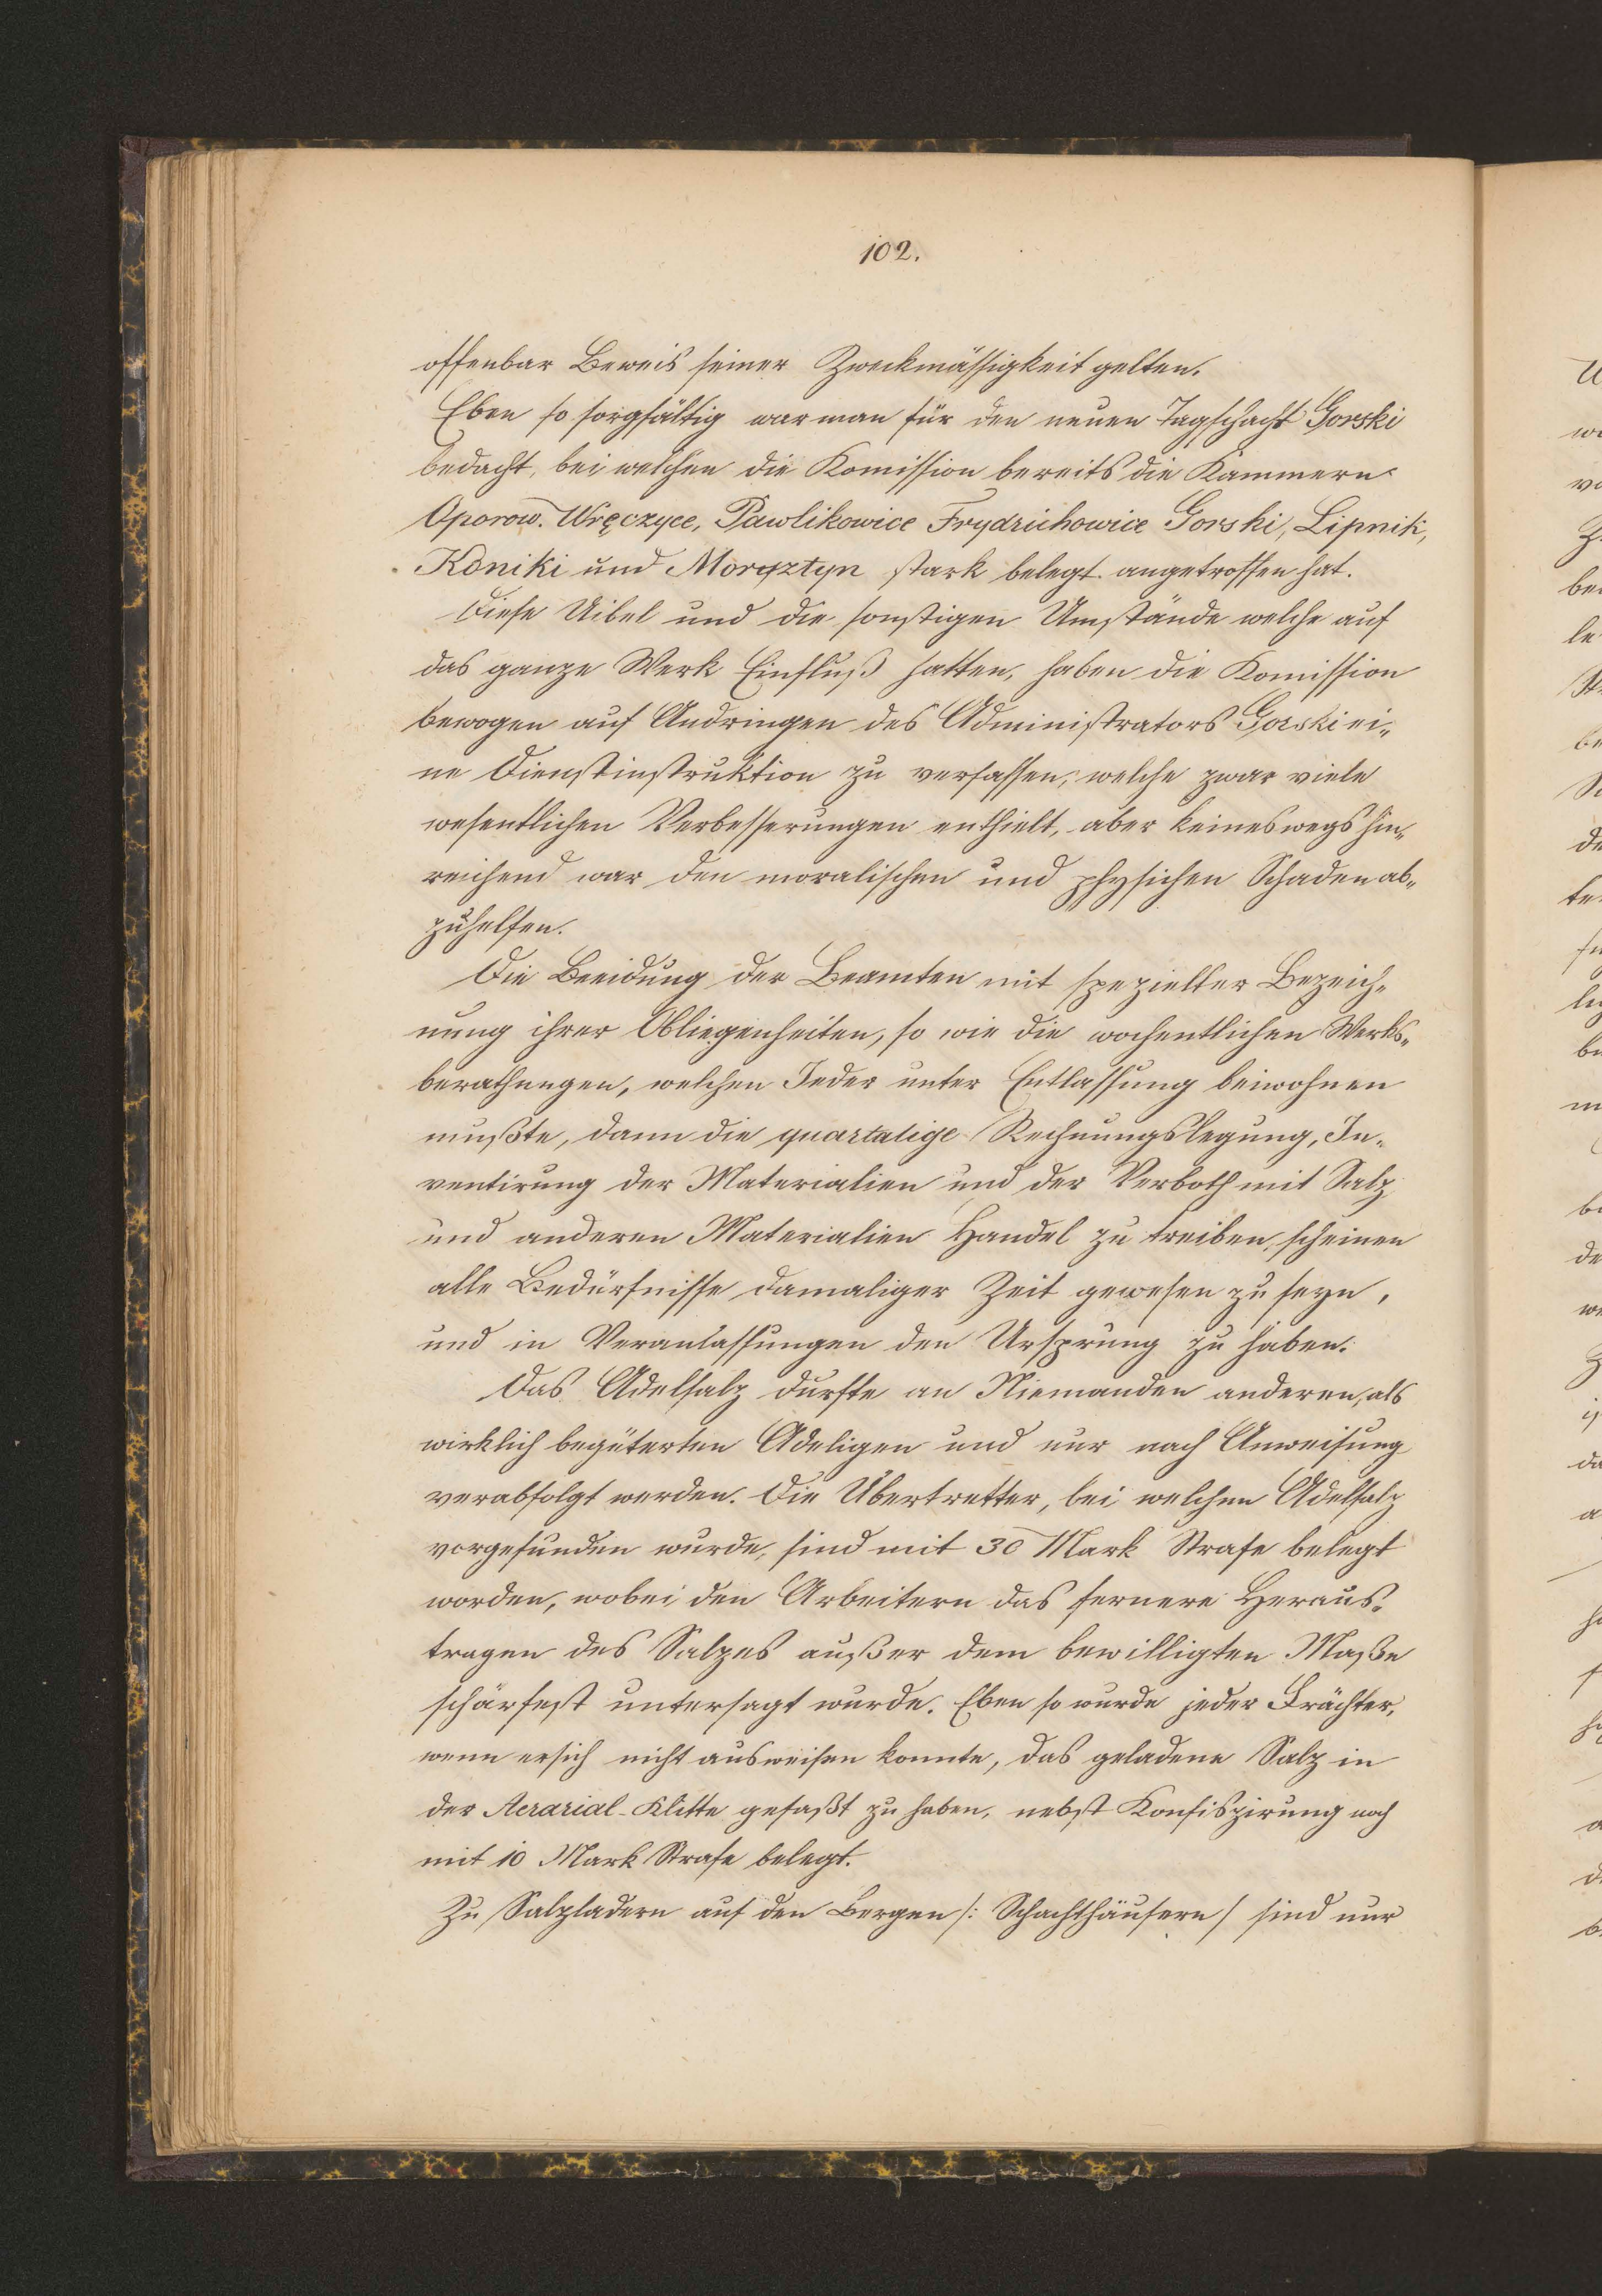 102.
offenbar Beweis seiner Zweckmässigkeit gelten.
Eben so sorgfältig war man für den neuen Tagschacht Gorski
bedacht, bei welchen die Komission bereits die Kammern
Oporow. Wręczyce, Pawlikowice Frydrichowice Gorski, Lipnik,
Koniki und Morysztyn stark belegt angetroffen hat.
Diese Uibel und die sonstigen Umstände welche auf
das ganze Werk Einfluß hatten, haben die Komission
bewogen auf Andringen des Administrators Gorski ei„
ne Dienstinstruktion zu verfassen, welche zwar viele
wesentlichen Verbesserungen enthielt, aber keineswegs hin„
reichend war den moralischen und physichen Schaden ab„
zuhelfen.
Die Beeidung der Beamten mit spezieller Bezeich„
nung ihrer Obliegenheiten, so wie die wochentlichen Werks„
berathungen, welchen Jeder unter Entlassung beiwohnen
mußte, dann die quartalige Rechnungslegung, In„
ventirung der Materialien und der Verboth mit Salz
und anderen Materialien Handel zu treiben, scheinen
alle Bedürfnisse damaliger Zeit gewesen zu seyn,
und in Veranlassungen den Ursprung zu haben.
Das Adelsalz durfte an Niemanden anderen, als
wirklich begüterten Adeligen und nur nach Anweisung
verabfolgt werden. Die Übertretter, bei welchen Adelsalz
vorgefunden wurde, sind mit 30 Mark Strafe belegt
worden, wobei den Arbeitern das fernere Heraus„
tragen des Salzes außer dem bewilligten Maße
schärfest untersagt wurde. Eben so wurde jeder Frächter,
wenn er sich nicht ausweisen konnte, das geladene Salz in
der Aerarial-Klitte gefaßt zu haben, nebst Konfiszirung noch
mit 10 Mark Strafe belegt.
Zu Salzladern auf den Bergen /: Schachthäusern / sind nur